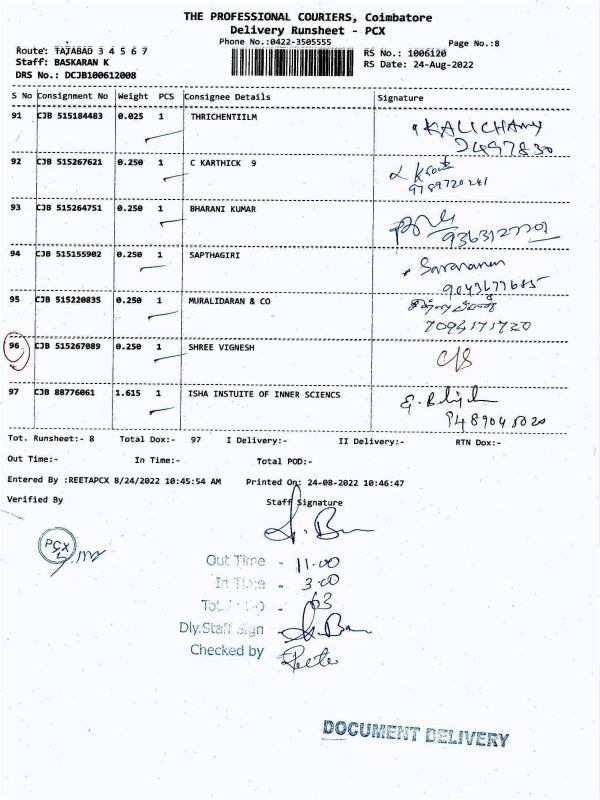 THE PROFESSIONAL COURIERS, Coimbatore
Delivery Runsheet - PCX
Phone No.:0422-3505555
Page No.:8
Route: TATABAD 3 4 5 6 7
RS No.: 1006120
Staff: BASKARAN K
RS Date: 24-Aug-2022
DRS No.: DCJB100612008
S No Consignment No Weight PCS Consignee Details Signature
91 CJB 515184483 0.025 1 THRICHENTIILM KALICHAMY
92 CJB 515267621 0.250 1 C KARTHICK 9
93 CJB 515264751 0.250 1 BHARANI KUMAR
94 CJB 515155902 0.250 1 SAPTHAGIRI Saravanan
95 CJB 515220835 0.250 1 MURALIDARAN & CO
7094171720
96 CJB 515267089 0.250 1 SHREE VIGNESH
97 CJB 88776061 1.615 1 ISHA INSTUITE OF INNER SCIENCS
Tot. Runsheet:- 8 Total Dox:- 97 I Delivery:- II Delivery:- RTN Dox:-
Out Time:- In Time:- Total POD:-
Entered By :REETAPCX 8/24/2022 10:45:54 AM Printed On: 24-08-2022 10:46:47
Verified By Staff Signature
PCX
Out Time - 11.00
In Time - 3.00
63
Dly.Staff Sign
Checked by Reeta
DOCUMENT DELIVERY